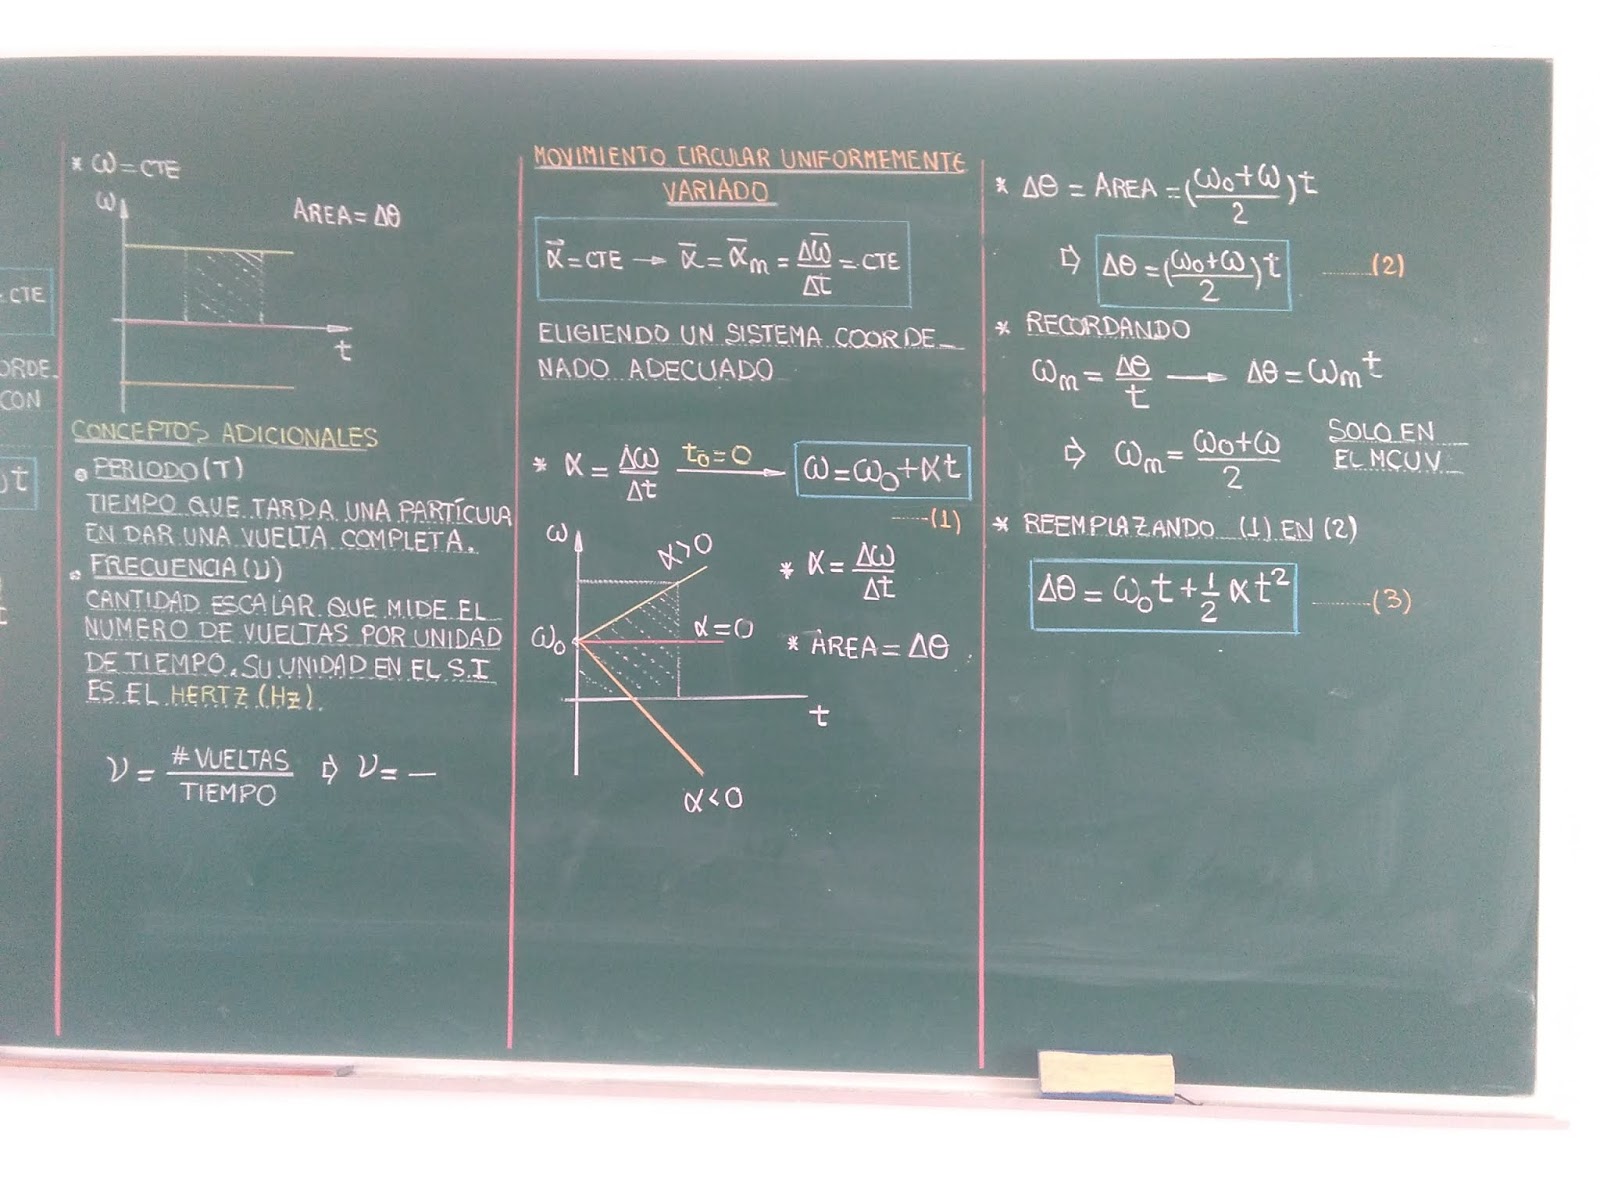 = CTE
ORDE_
CON
t
* ω = CTE
ω
AREA = Δθ
t
CONCEPTOS ADICIONALES
PERIODO (T)
TIEMPO QUE TARDA UNA PARTÍCULA
EN DAR UNA VUELTA COMPLETA.
FRECUENCIA (ν)
CANTIDAD ESCALAR QUE MIDE EL
NUMERO DE VUELTAS POR UNIDAD
DE TIEMPO. SU UNIDAD EN EL S.I
ES EL HERTZ (Hz).
ν = # VUELTAS / TIEMPO ⇨ ν = —
MOVIMIENTO CIRCULAR UNIFORMEMENTE
VARIADO
α⃗ = CTE → ᾱ = ᾱm = Δω̄/Δt = CTE
ELIGIENDO UN SISTEMA COORDE_
NADO ADECUADO
* α = Δω/Δt t₀=0 → ω = ω₀ + αt
......(1)
ω
α>0
* α = Δω/Δt
ω₀
α=0
* AREA = Δθ
t
α<0
* Δθ = AREA = ((ω₀+ω)/2)t
⇨ Δθ = ((ω₀+ω)/2)t ......(2)
* RECORDANDO
ωm = Δθ/t → Δθ = ωm t
⇨ ωm = (ω₀+ω)/2
SOLO EN
EL MCUV
* REEMPLAZANDO (1) EN (2)
Δθ = ω₀t + ½ αt² ......(3)